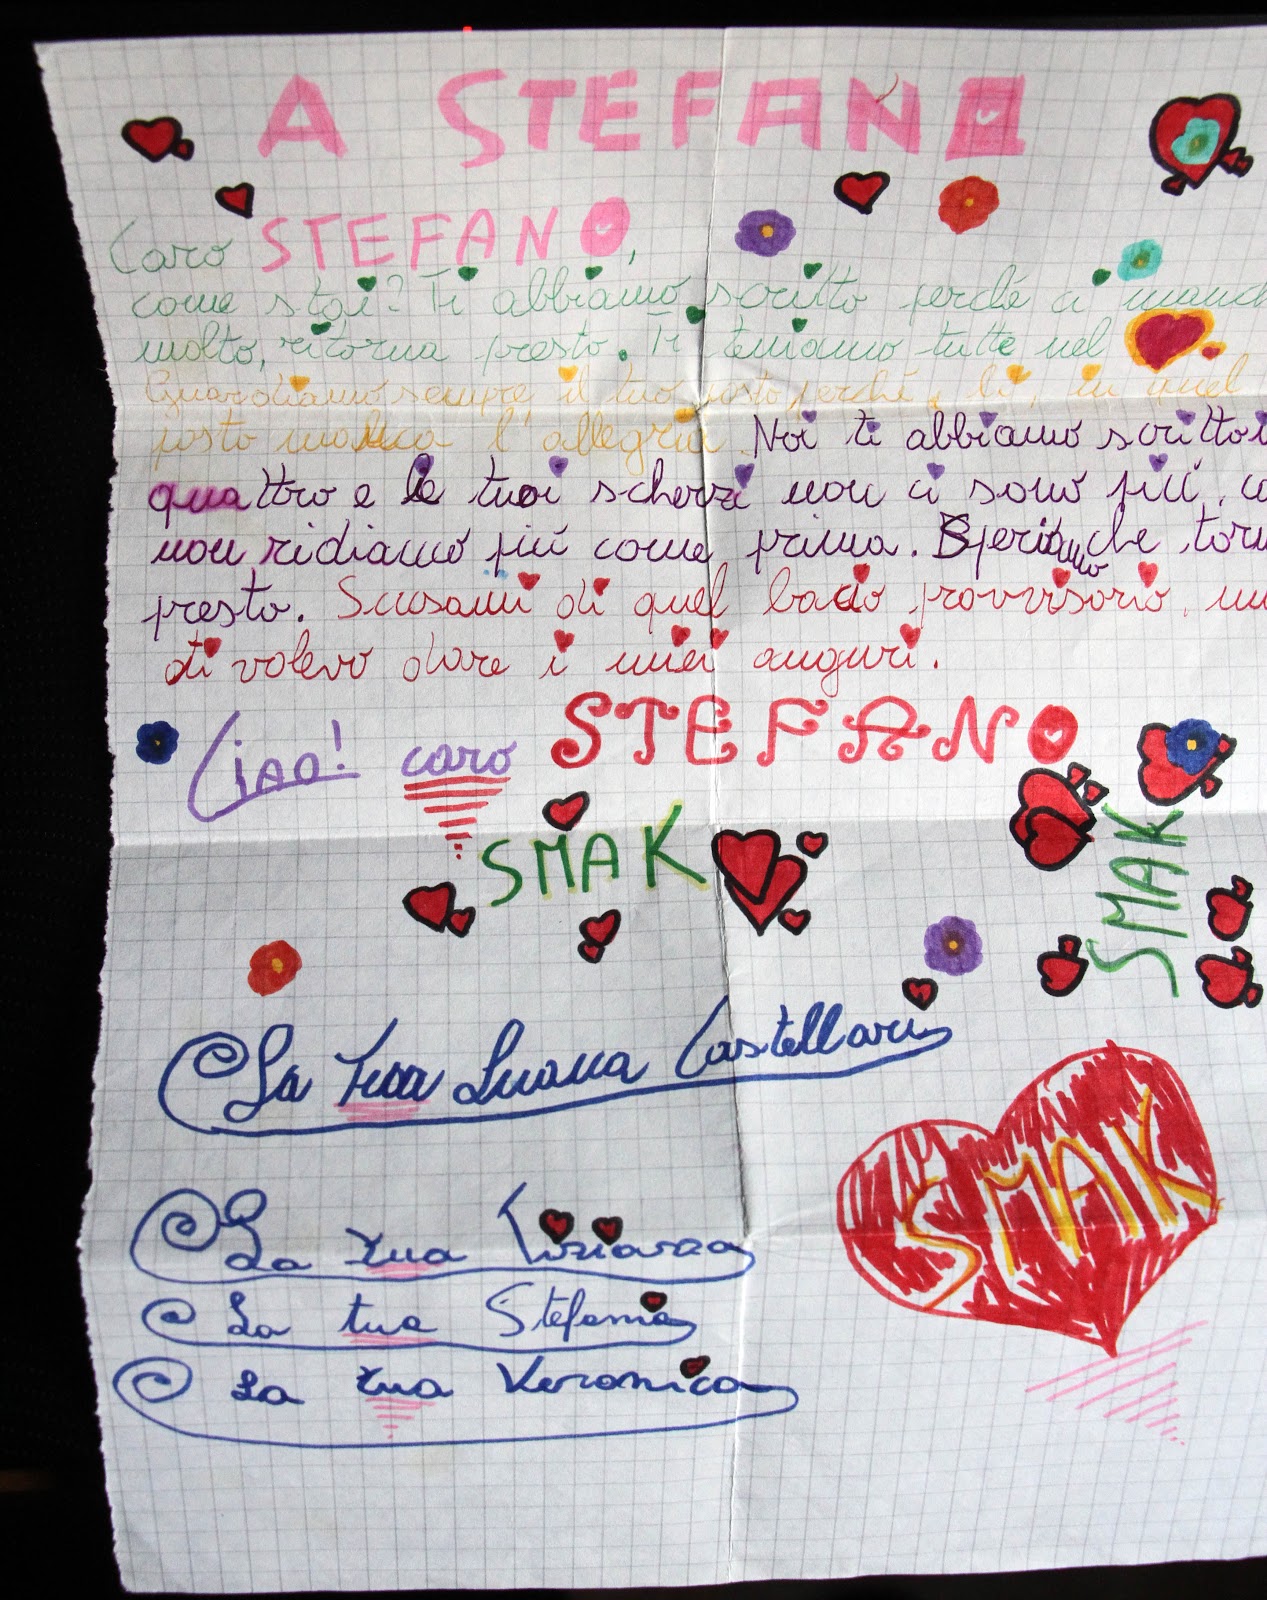 A STEFANO
Caro STEFANO,
come stai? Ti abbiamo scritto perché ci manch
molto, ritorna presto. Ti teniamo tutte nel
Guardiamo sempre il tuo posto perché, lì, in quel
posto manca l'allegria. Noi ti abbiamo scritto i
quattro e le tuoi scherzi non ci sono più, co
non ridiamo più come prima. Speriamo che torn
presto. Scusami di quel bacio provvisorio, m
di volevo dare i miei auguri.
Ciao! caro STEFANO
SMAK
SMAK
La tua Luana Castellari
SMAK
La tua Tiziana
La tua Stefania
La tua Veronica